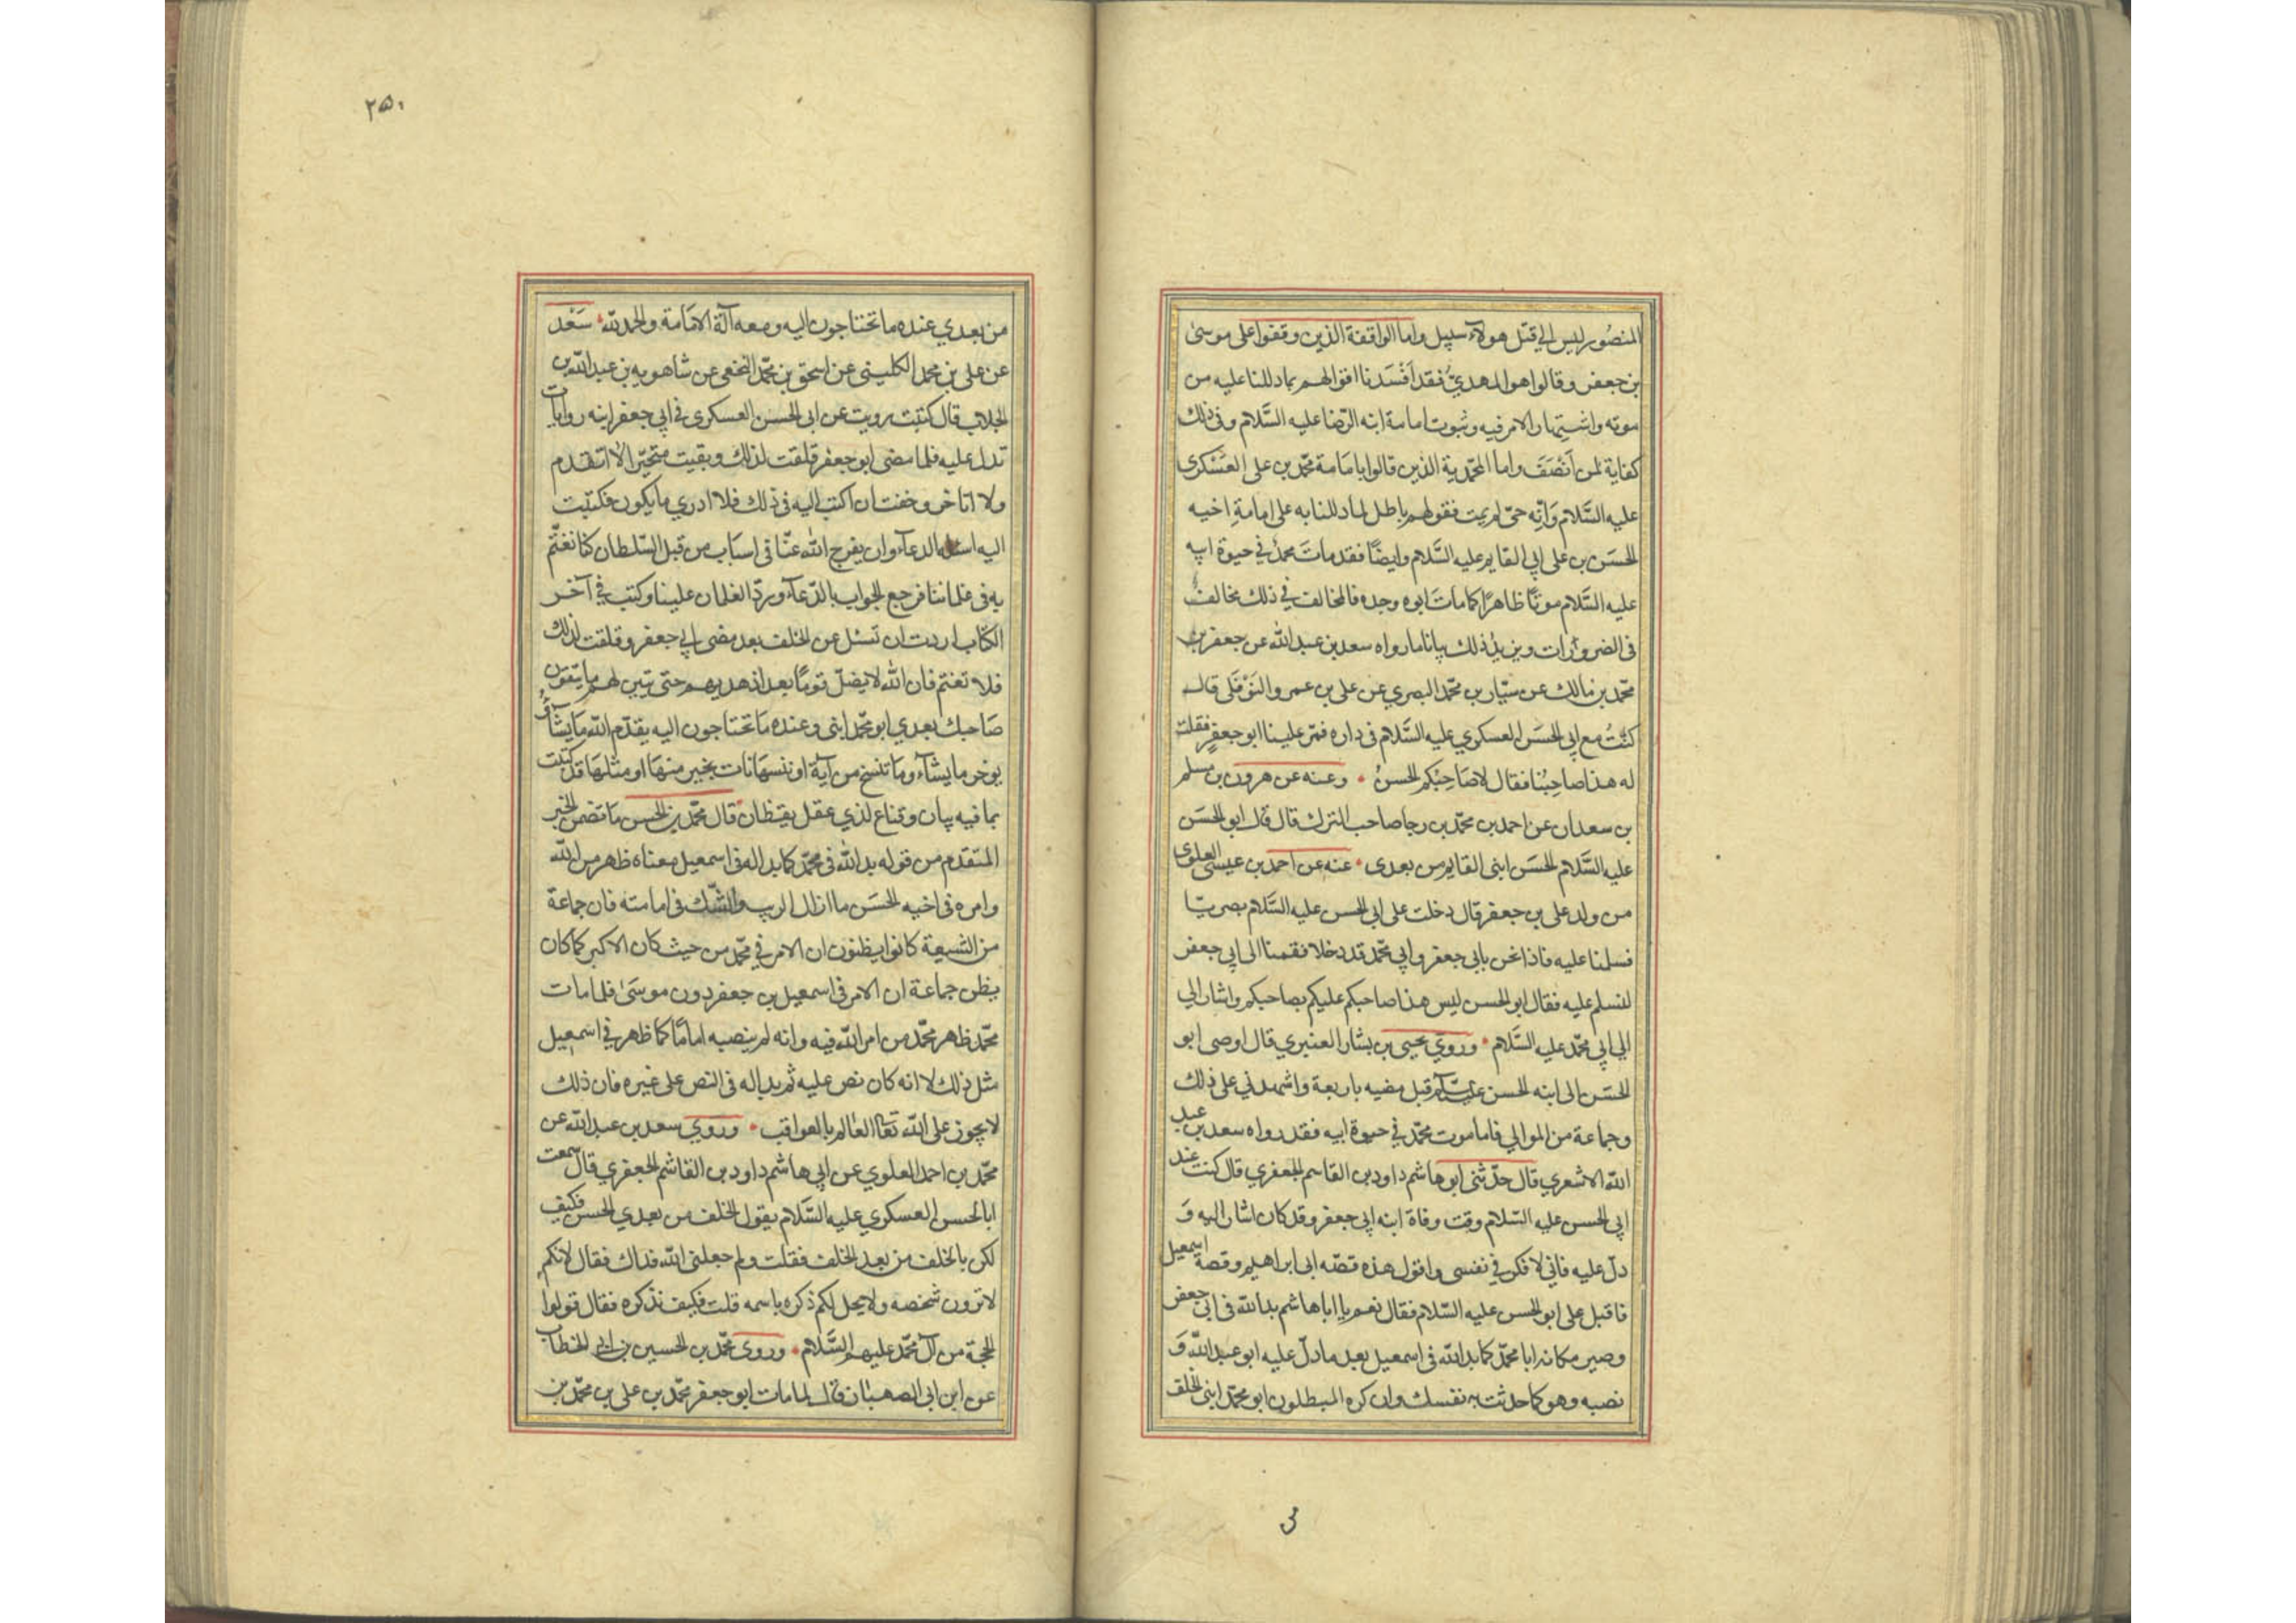 المنصور ليس الي قتل هولاء سبيل واما الواقفة الذين وقفوا على موسى
بن جعفر وقالوا هو المهدي فقد افسدنا اقوالهم بما دللنا عليه من
موته واشتهار الامر فيه وثبوت امامة ابنه الرضا عليه السلام وفي ذلك
كفاية لمن انصف واما المحمدية الذين قالوا بامامة محمد بن على العسكرى
عليه السلام وانه حى لم يمت فقولهم باطل لما دللنا به على امامة اخيه
الحسن بن على ابي القايم عليه السلام وايضا فقد مات محمد في حيوة ابيه
عليه السلام موتا ظاهرا كما مات ابوه وجده فالمخالف في ذلك مخالف
فى الضرورات ويزيد ذلك بيانا ما رواه سعد بن عبد الله عن جعفر بن
محمد بن مالك عن سيار بن محمد البصري عن على بن عمرو النوفلى قال
كنت مع ابي الحسن العسكري عليه السلام فى داره فمر علينا ابو جعفر فقلت
له هذا صاحبنا فقال لا صاحبكم الحسن وعنه عن هرون بن مسلم
بن سعدان عن احمد بن محمد بن رجا صاحب الترك قال قال ابو الحسن
عليه السلام الحسن ابنى القايم من بعدى عنه عن احمد بن عيسى العلوى
من ولد على بن جعفر قال دخلت على ابي الحسن عليه السلام بصريا
فسلمنا عليه فاذا نحن بابى جعفر وابي محمد قد دخلا فقمنا الى ابي جعفر
لنسلم عليه فقال ابو الحسن ليس هذا صاحبكم عليكم بصاحبكم واشار الي
الى ابي محمد عليه السلام وروي يحيى بن بشار العنبري قال اوصى ابو
الحسن الى ابنه الحسن عليه السلام قبل مضيه باربعة واشهدني على ذلك
وجماعة من الموالي فاما موت محمد في حيوة ابيه فقد رواه سعد بن عبد
الله الاشعري قال حدثنى ابو هاشم داود بن القاسم الجعفري قال كنت عند
ابي الحسن عليه السلام وقت وفاة ابنه ابي جعفر وقد كان اشار اليه و
دل عليه فاني لافكر في نفسى واقول هذه قصه ابى ابراهيم وقصة اسمعيل
فاقبل على ابو الحسن عليه السلام فقال نعم يا ابا هاشم بدا لله في ابي جعفر
وصير مكانه ابا محمد كما بدا لله فى اسمعيل بعد ما دل عليه ابو عبد الله و
نصبه وهو كما حدثت به نفسك وان كره المبطلون ابو محمد ابنى الخلف
٣
٢٥٠
من بعدي عنده ما تحتاجون اليه ومعه آلة الامامة والحمد لله سعد
عن على بن محمد الكلينى عن اسحق بن محمد النخعى عن شاهويه بن عبد الله بن
الجلاب قال كنت رويت عن ابى الحسن العسكرى في ابي جعفر ابنه روايات
تدل عليه فلما مضى ابو جعفر قلقت لذلك وبقيت متحيرا لا اتقدم
ولا اتاخر وخفت ان اكتب اليه فى ذلك فلا ادري ما يكون فكتبت
اليه اسئله الدعاء وان يفرج الله عنا فى اسباب من قبل السلطان كنا نغتم
به فى غلماننا فرجع الجواب بالدعاء ورد الغلمان علينا وكتب في آخر
الكتاب اردت ان تسئل عن الخلف بعد مضى ابي جعفر وقلقت لذلك
فلا تغتم فان الله لا يضل قوما بعد اذ هديهم حتى يتبين لهم ما يتقون
صاحبك بعدي ابو محمد ابنى وعنده ما تحتاجون اليه يقدم الله ما يشاء و
يوخر ما يشاء وما ننسخ من آية او ننسها نات بخير منها او مثلها قد كتبت
بما فيه بيان وقناع لذي عقل يقظان قال محمد بن الحسن ما تضمن الخبر
المتقدم من قوله بدا لله فى محمد كما بدا له فى اسمعيل معناه ظهر من الله
وامره فى اخيه الحسن ما ازال الريب والشك فى امامته فان جماعة
من الشيعة كانوا يظنون ان الامر في محمد من حيث كان الاكبر كما كان
يظن جماعة ان الامر فى اسمعيل بن جعفر دون موسى فلما مات
محمد ظهر محمد من امر الله فيه وانه لم ينصبه اماما كما ظهر في اسمعيل
مثل ذلك لا انه كان نص عليه ثم بدا له فى النص على غيره فان ذلك
لا يجوز على الله تعالى العالم بالعواقب وروي سعد بن عبد الله عن
محمد بن احمد العلوي عن ابي هاشم داود بن القاسم الجعفري قال سمعت
ابا الحسن العسكري عليه السلام يقول الخلف من بعدي الحسن فكيف
لكم بالخلف من بعد الخلف فقلت ولم جعلنى الله فداك فقال لانكم
لا ترون شخصه ولا يحل لكم ذكره باسمه قلت فكيف نذكره فقال قولوا
الحجة من آل محمد عليهم السلام وروى محمد بن الحسين بن ابي الخطاب
عن ابن ابى الصهبان قال لما مات ابو جعفر محمد بن على بن محمد بن